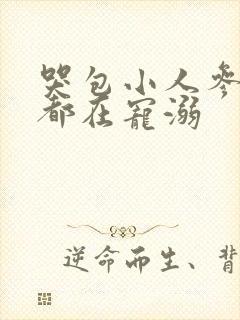 哭包小人参
都在宠溺
逆命而生、背